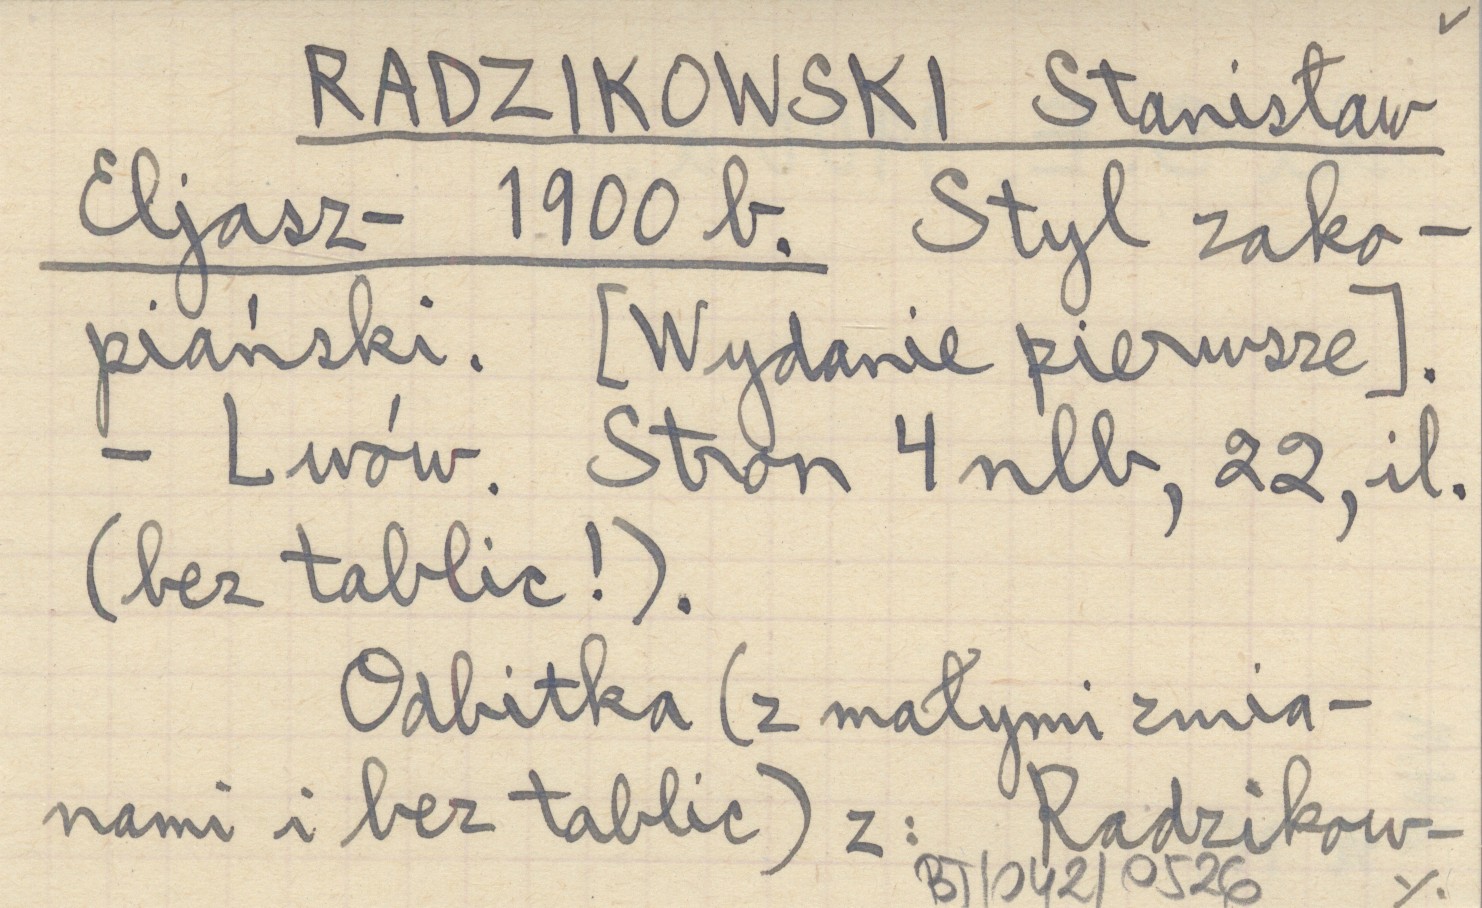 RADZIKOWSKI Stanisław
Eljasz- 1900 b. Styl zako-
piański. [Wydanie pierwsze].
- Lwów. Stron 4 nlb, 22, il.
(bez tablic!).
Odbitka (z małymi zmia-
nami i bez tablic) z: Radzikow-
BJ/042/0526